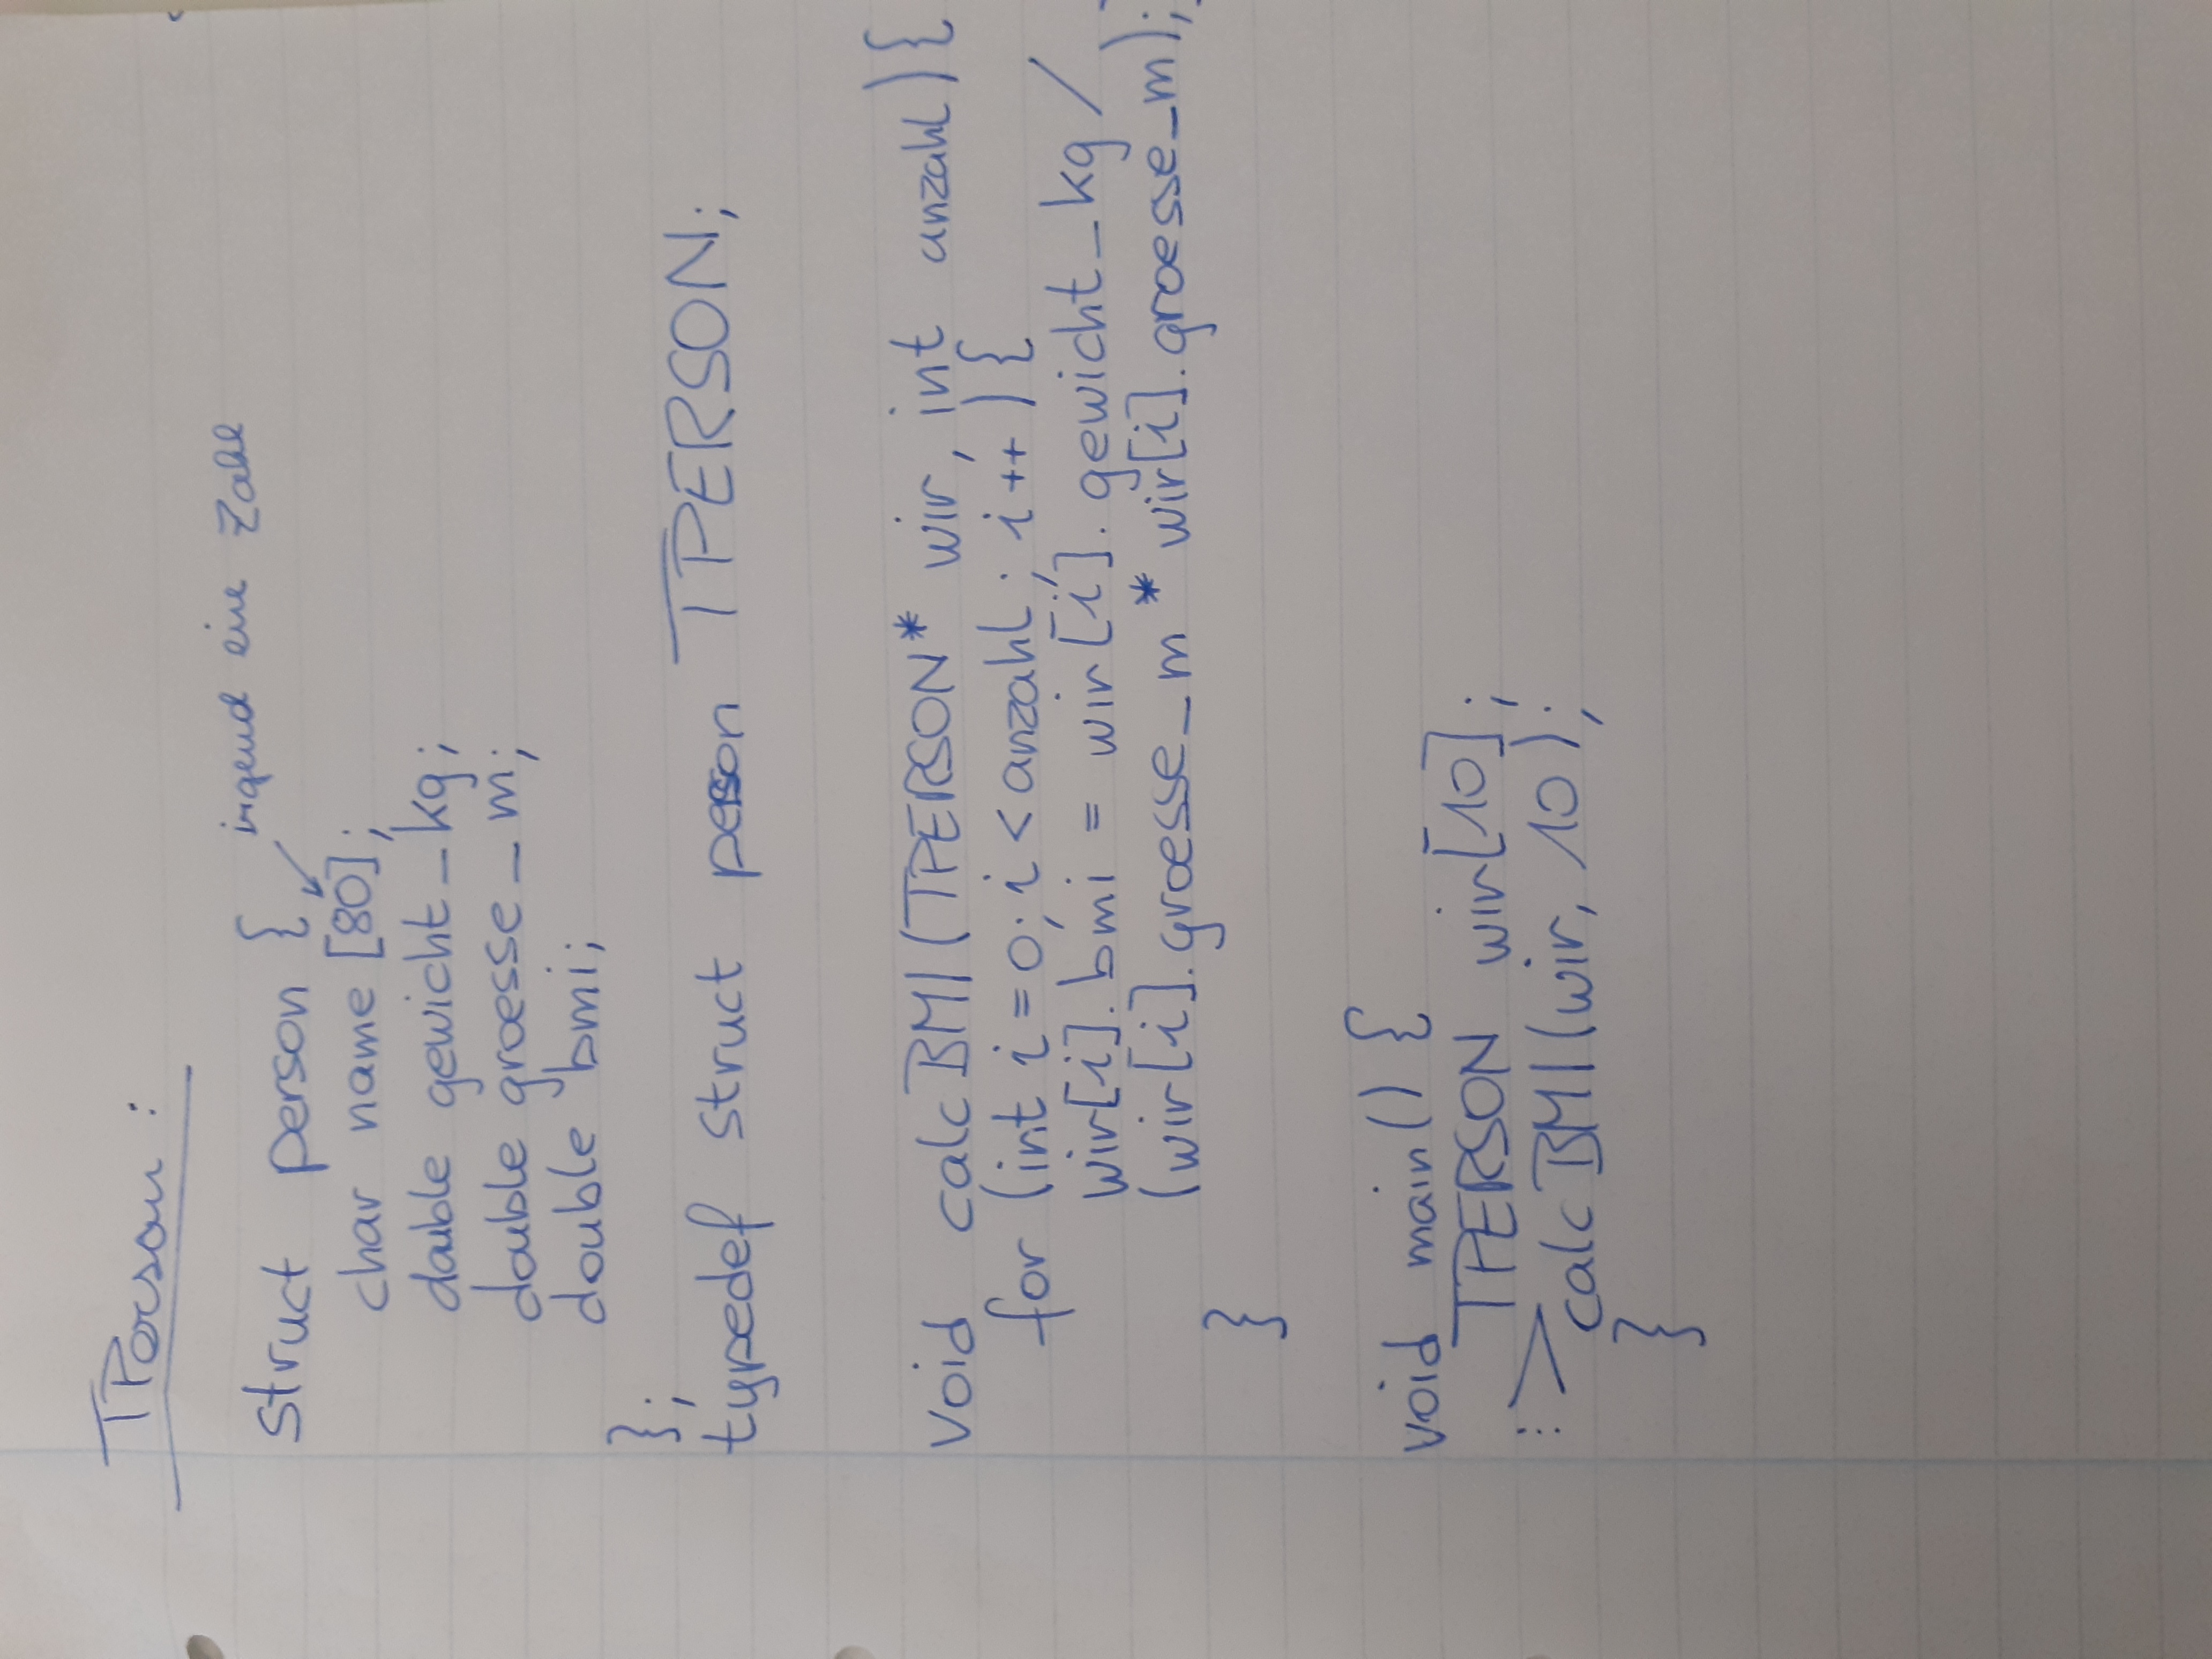 TPerson :
irgend eine Zahl
struct person {
char name [80];
double gewicht_kg;
double groesse_m;
double bmi;
};
typedef struct person TPERSON;
void calcBMI(TPERSON* wir, int anzahl){
for (int i=0; i<anzahl; i++){
wir[i].bmi = wir[i].gewicht_kg /
(wir[i].groesse_m * wir[i].groesse_m);
}
void main() {
TPERSON wir[10];
calcBMI(wir, 10);
}